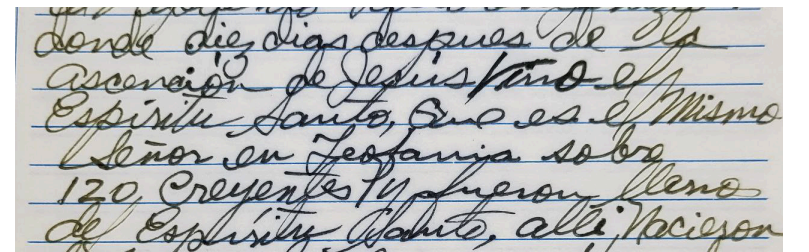 donde diez dias despues de la
ascención de Jesús vino el
Espíritu Santo, que es el Mismo
Señor en Teofania sobre
120 Creyentes y fueron lleno
del Espíritu Santo, alli Nacieron